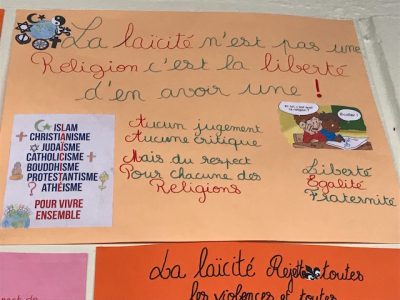 La laïcité n'est pas une
Religion c'est la liberté
d'en avoir une !
ISLAM
CHRISTIANISME
JUDAÏSME
CATHOLICISME
BOUDDHISME
PROTESTANTISME
ATHÉISME
POUR VIVRE
ENSEMBLE
Aucun jugement
Aucune critique
Mais du respect
Pour chacune des
Religions
Liberté
Égalité
Fraternité
La laïcité Rejette toutes
les violences et toutes